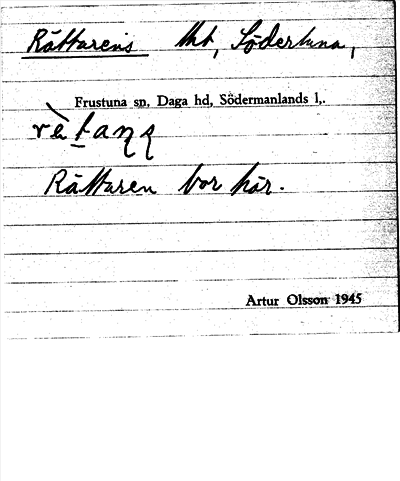 Rättarens tht, Södertuna,
Frustuna sn, Daga hd, Södermanlands l,.
Rättaren bor här.
Artur Olsson 1945